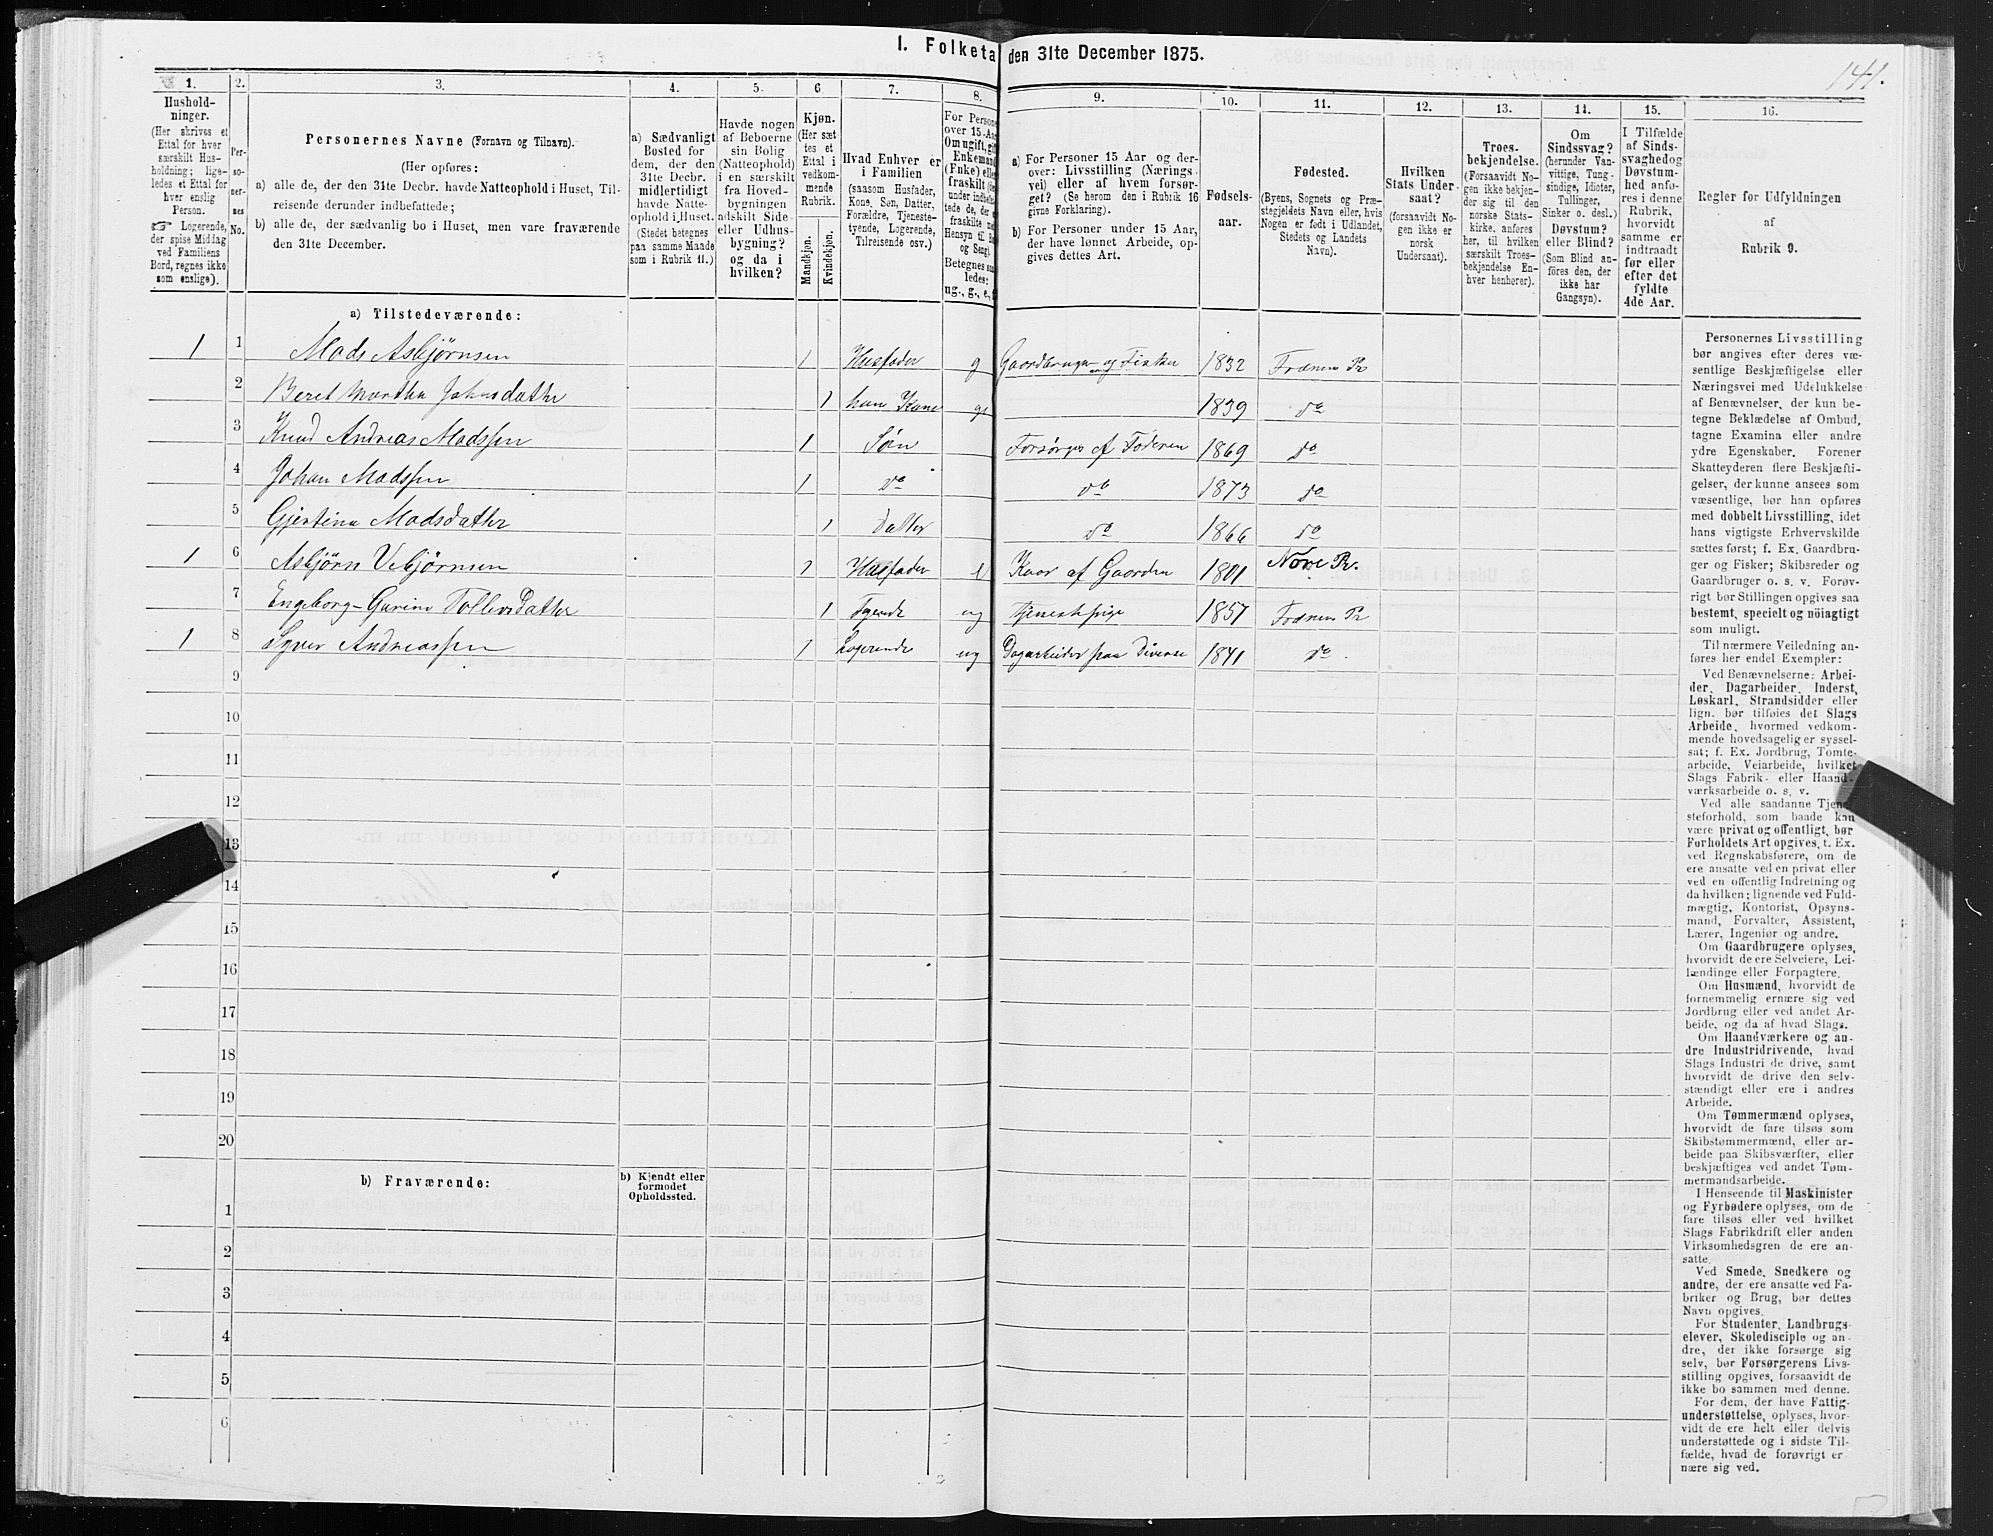 I. Folketa den 31te December 1875.
141.
1. 2. 3. 4. 5. 6. 7. 8. 9. 10. 11. 12. 13. 14. 15. 16.
Hushold-
ninger.
(Her skrives et
Ettal for hver
særskilt Hus-
holdning; lige-
ledes et Ettal for
hver enslig
Person.
☞ Logerende,
der spise Middag
ved Familiens
Bord, regnes ikke
som enslige).
Per-
so-
ner-
nes
No.
Personernes Navne (Fornavn og Tilnavn).
(Her opføres:
a) alle de, der den 31te Decbr. havde Natteophold i Huset, Til-
reisende derunder indbefattede;
b) alle de, der sædvanlig bo i Huset, men vare fraværende
den 31te December.
a) Sædvanligt
Bosted for
dem, der den
31te Decbr.
midlertidigt
havde Natte-
ophold i Huset.
(Stedet betegnes
paa samme Maade
som i Rubrik 11.)
Havde nogen
af Beboerne
sin Bolig
(Natteophold)
i en særskilt
fra Hoved-
bygningen
adskilt Side-
eller Udhus-
bygning?
og da i
hvilken?
Kjøn.
(Her sæt-
tes et
Ettal i
vedkom-
mende
Rubrik.
Mandkjøn.
Kvindekjøn.
Hvad Enhver er
i Familien
(saasom Husfader,
Kone, Søn, Datter,
Forældre, Tjeneste-
tyende, Logerende,
Tilreisende osv.)
For Persone
over 15 Aa
Om ugift, gif
Enkeman
(Enke) elle
fraskilt
under indbe
tede de, der
fraskilte m
Hensyn til B
og Seng).
Betegnes saa
ledes:
ug., g., e.,
a) For Personer 15 Aar og der-
over: Livsstilling (Nærings-
vei) eller af hvem forsør-
get? (Se herom den i Rubrik 16
givne Forklaring).
b) For Personer under 15 Aar,
der have lønnet Arbeide, op-
gives dettes Art.
Fødsels-
aar.
Fødested.
(Byens, Sognets og Præ-
stegjeldets Navn eller, hvis
Nogen er født i Udlandet,
Stedets og Landets
Navn).
Hvilken
Stats Under-
saat?
(forsaavidt No-
gen ikke er
norsk
Undersaat).
Troes-
bekjendelse.
(Forsaavidt No-
gen ikke bekjen-
der sig til den
norske Stats-
kirke, anføres
her, til hvilken
særskilt Troes-
bekjendelse En-
hver henhører).
Om
Sindssvag?
(herunder Van-
vittige, Tung-
sindige, Idioter,
Tullinger,
Sinker o. desl.)
Døvstum?
eller Blind?
(Som Blind an-
føres den, der
ikke har
Gangsyn).
I Tilfælde
af Sinds-
svaghedog
Døvstum-
hed anfø-
res i denne
Rubrik,
hvorvidt
samme er
indtraadt
før eller
efter det
fyldte
4de Aar.
Regler for Udfyldningen
af
Rubrik 9.
a) Tilstedeværende:
1 1 Mads Asbjørnsen 1 Husfader g Gaardbruger og Fisker 1832 Frænen Pr
2 Beret Martha Johnsdatter 1 hans Kone g 1839 do
3 Knud Andreas Madssen 1 Søn Forsørges af Faderen 1869 do
4 Johan Madssen 1 do do 1873 do
5 Gjertina Madsdatter 1 Datter do 1866 do
1 6 Asbjørn Vebjørnsen 1 Husfader e Kaar af Gaarden 1801 Pr.
7 Engeborg-Gurine Tollevsdatter 1 Tyende ug Tjenestepige 1857 Frænen Pr
1 8 Syver Andreassen 1 Logerende ug Dagarbeider paa Diverse 1841 do.
9
10
11
12
13
14
15
16
17
18
19
20
b) Fraværende:
b) Kjendt eller
formodet
Opholdssted.
1
2
3
4
5
6
Personernes Livsstilling
bør angives efter deres væ-
sentlige Beskjæftigelse eller
Næringsvei med Udelukkelse
af Benævnelser, der kun be-
tegne Beklædelse af Ombud,
tagne Examina eller andre
ydre Egenskaber. Forener
Skatteyderen flere Beskjæfti-
gelser, der kunne ansees som
væsentlige, bør han opføres
med dobbelt Livsstilling, idet
hans vigtigste Erhvervskilde
sættes først; f. Ex. Gaardbru-
ger og Fisker; Skibsreder og
Gaardbruger o. s. v. Forøv-
rigt bør Stillingen opgives saa
bestemt, specielt og nöiagtigt
som muligt.
Til nærmere Veiledning an-
føres her endel Exempler:
Ved Benævnelserne: Arbei-
der, Dagarbeider, Inderst,
Løskarl, Strandsidder eller
lign. bør tilføies det Slags
Arbeide, hvormed vedkom-
mende hovedsagelig er syssel-
sat; f. Ex. Jordbrug, Tomte-
arbeide, Veiarbeide, hvilket
Slags Fabrik- eller Haand-
værksarbeide o. s. v.
Ved alle saadanne Tjene-
steforhold, som baade kan
være privat og offentligt, bør
Forholdets Art opgives, t. Ex.
ved Regnskabsførere, om de
ere ansatte ved en privat eller
ved en offentlig Indretning og
da hvilken; lignende ved Fuld-
mægtig, Kontorist, Opsyns-
mand, Forvalter, Assistent,
Lærer, Ingeniør og andre.
Om Gaardbrugere oplyses,
hvorvidt de ere Selveiere, Lei-
lændinge eller Forpagtere.
Om Husmænd, hvorvidt de
fornemmelig ernære sig ved
Jordbrug eller ved andet Ar-
beide, og da af hvad Slags.
Om Haandværkere og an-
dre Industridrivende, hvad
Slags Industri de drive, samt
hvorvidt de drive den selv-
stændigt eller ere i andres
Arbeide.
Om Tømmermænd oplyses,
hvorvidt de fare tilsøs som
Skibstømmermænd, eller ar-
beide paa Skibsværfter, eller
beskjæftiges ved andet Tøm-
mermandsarbeide.
I Henseende til Maskinister
og Fyrbødere oplyses, om de
fare tilsøs eller ved hvilket
Slags Fabrikdrift eller anden
Virksomhedsgren de ere an-
satte.
Ved Smede, Snedkere og
andre, der ere ansatte ved Fa-
briker og Brug, bør dettes
Navn opgives.
For Studenter, Landbrugs-
elever, Skoledisciple og an-
dre, der ikke forsørge sig
selv, bør Forsørgerens Livs-
stilling opgives, forsaavidt de
ikke bo sammen med denne.
For dem, der have Fattig-
understøttelse, oplyses, hvor-
vidt de ere helt eller delvis
understøttede og i sidste Til-
fælde, hvad de forøvrigt er
nære sig ved.